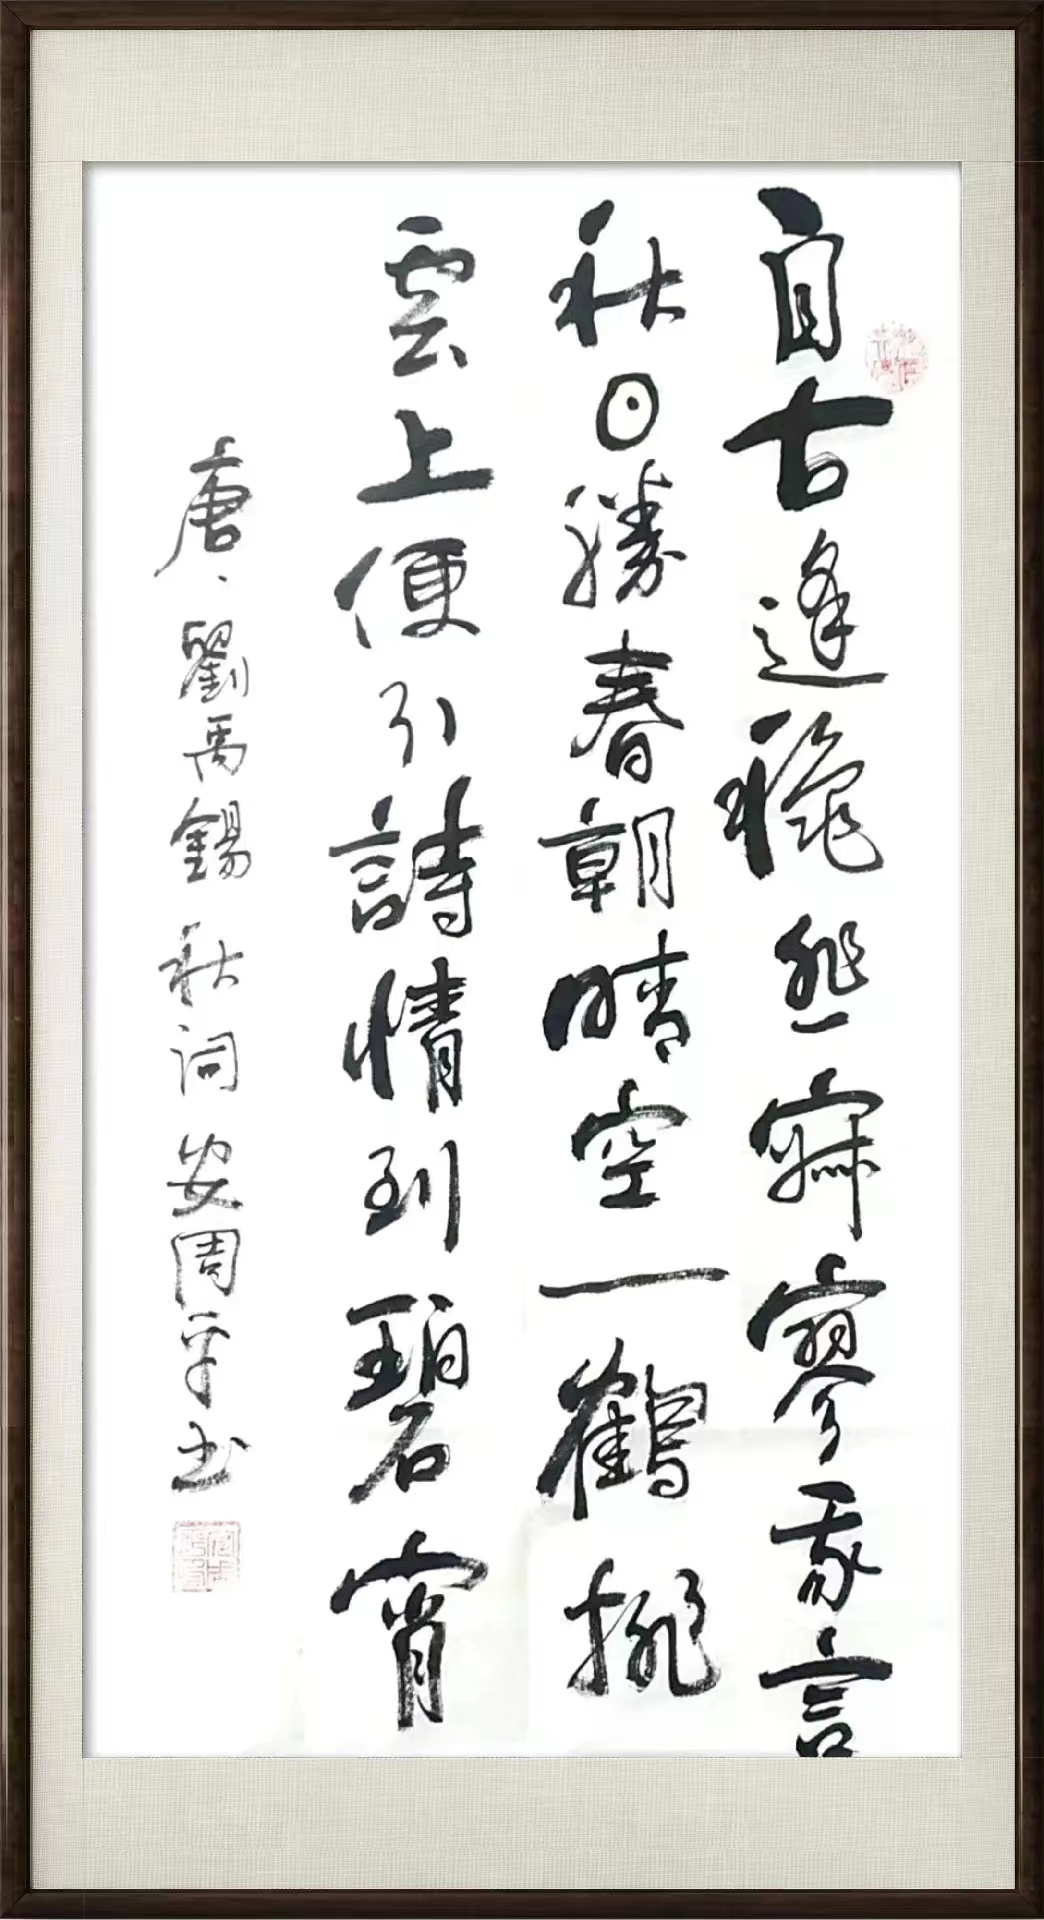 自古逢秋悲寂寥我言
秋日勝春朝晴空一鶴排
雲上便引詩情到碧霄
唐、劉禹錫秋詞安周平书